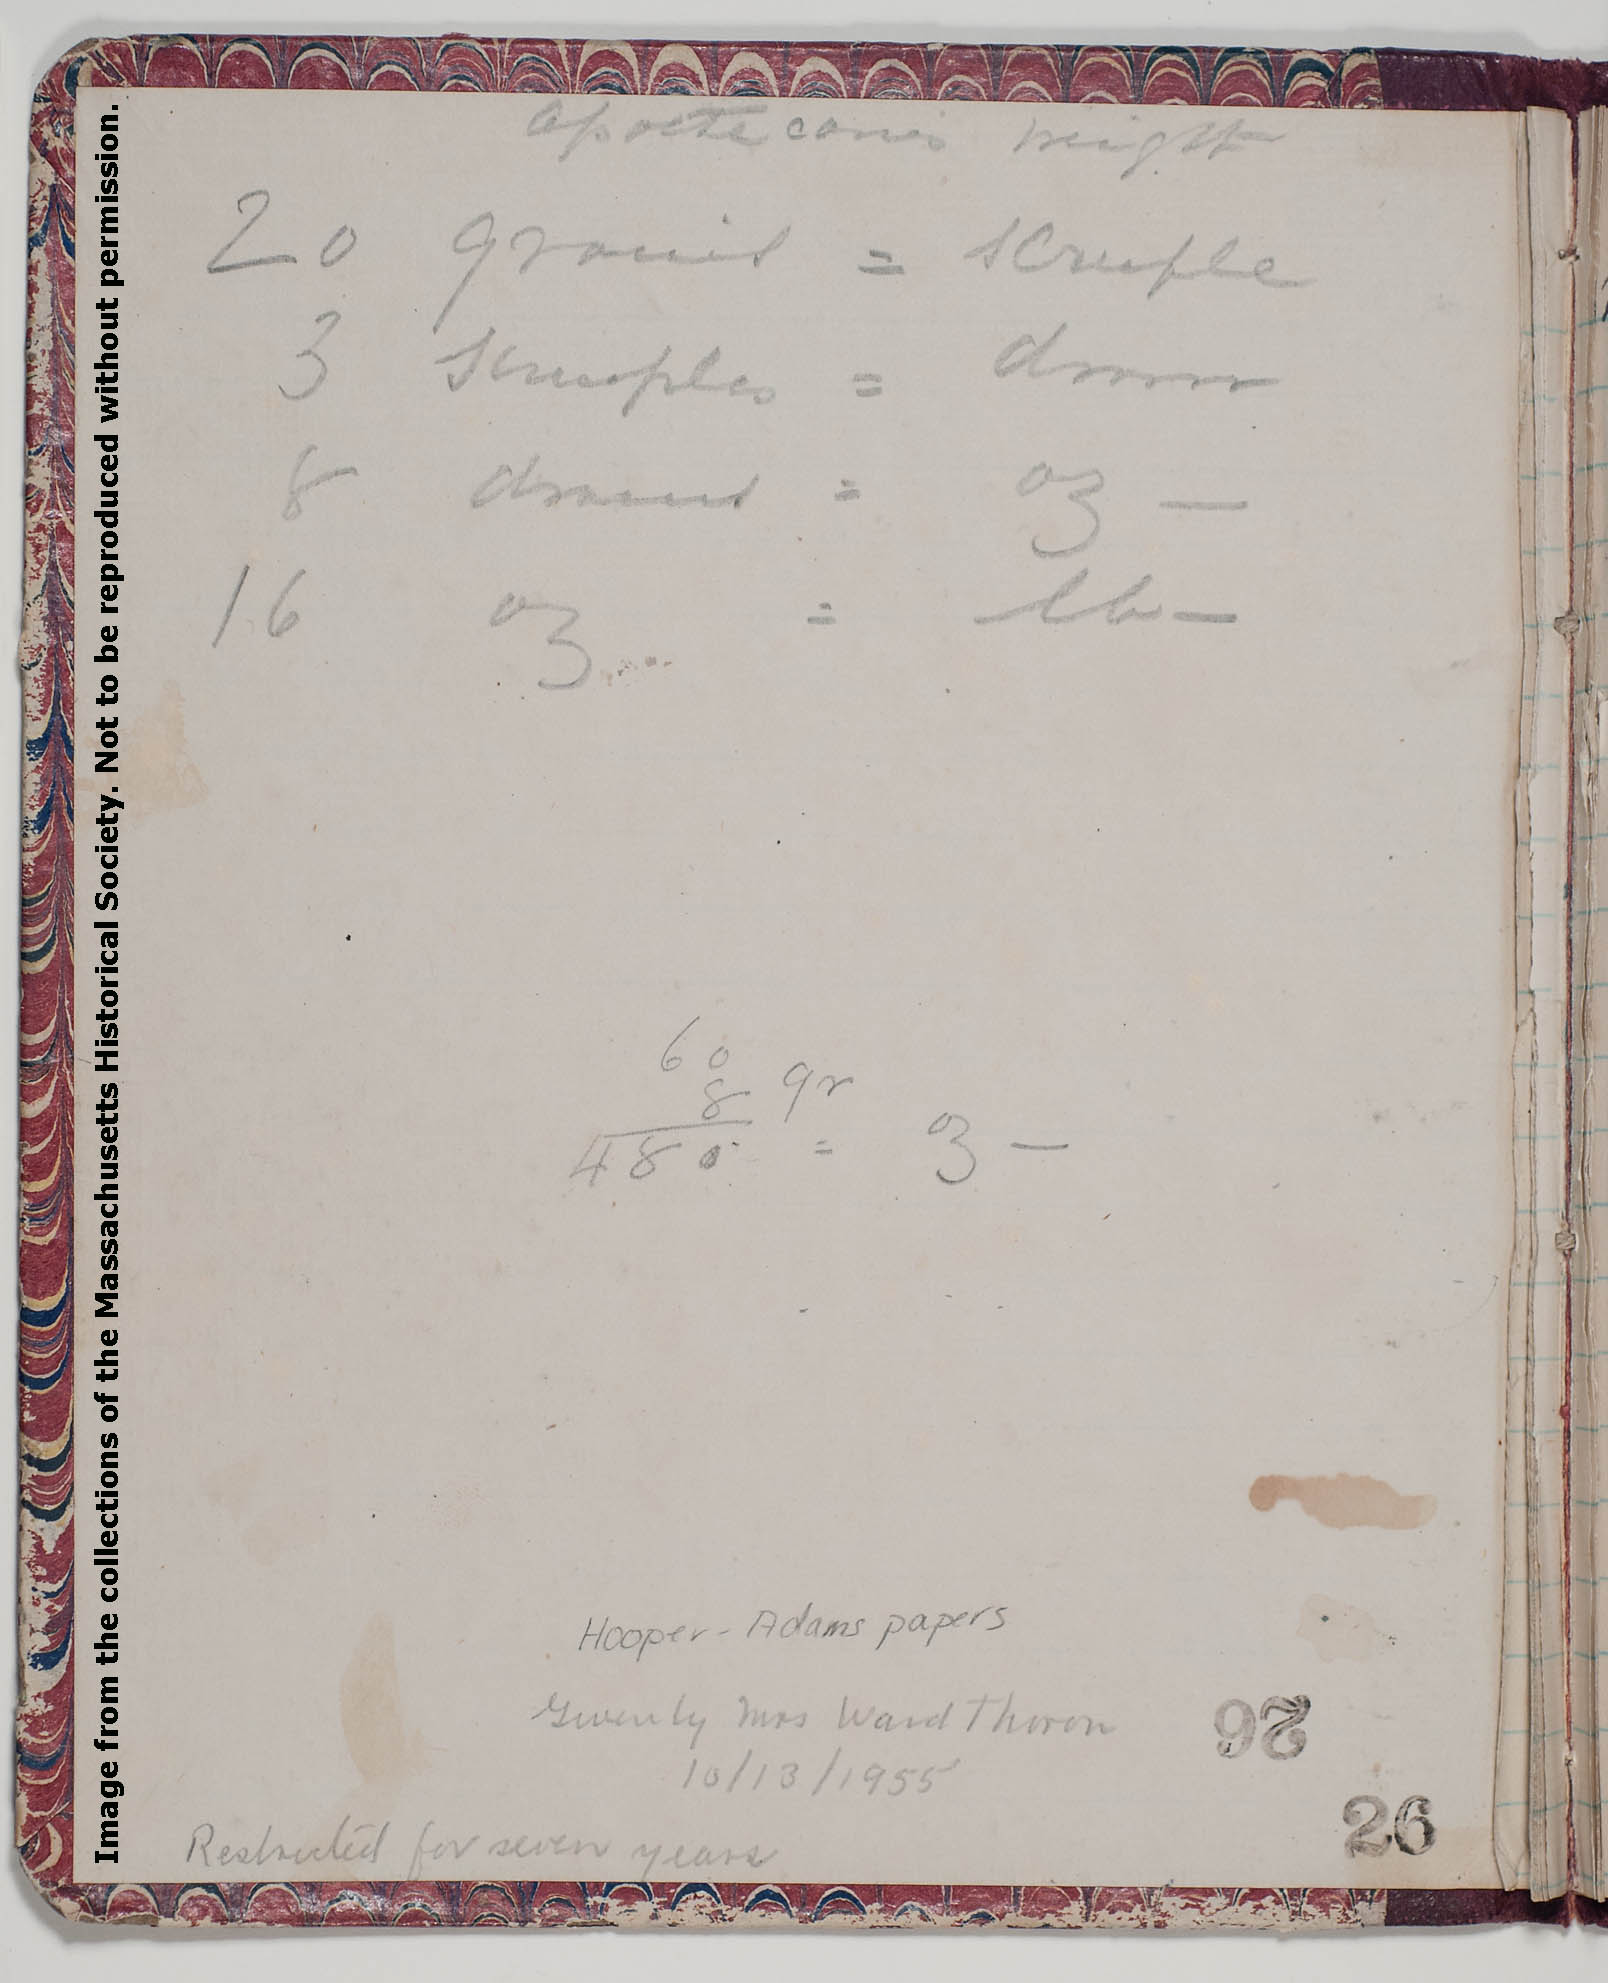 apothecaries weight
20 grains = scruple
3 scruples = dram
8 drams = oz —
16 oz = lb —
60
8 gr
480 = oz —
Hooper-Adams papers
Given by Mrs Ward Thoron
10/13/1955
26
26
Restricted for seven years
Image from the collections of the Massachusetts Historical Society. Not to be reproduced without permission.